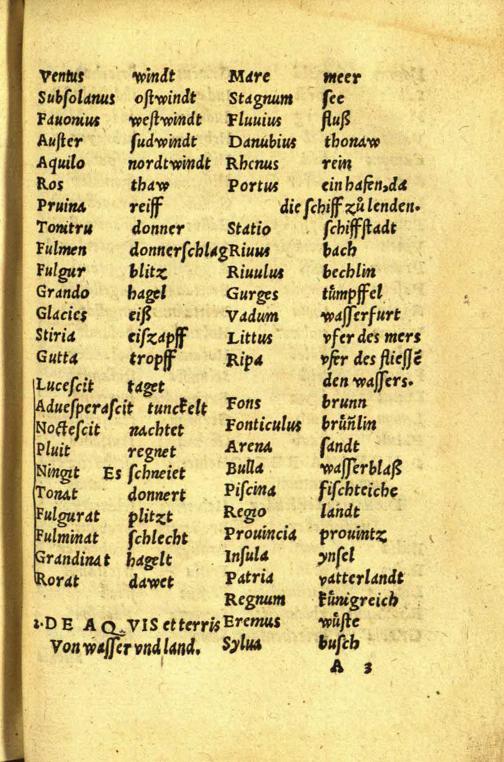 Ventus windt
Subſolanus oſtwindt
Fauonius weſtwindt
Auſter ſudwindt
Aquilo nordtwindt
Ros thaw
Pruina reiff
Tonitru donner
Fulmen donnerſchlag
Fulgur blitz
Grando hagel
Glacies eiß
Stiria eiſzapff
Gutta tropff
Luceſcit taget
Adueſperaſcit tunckelt
Nocteſcit nachtet
Pluit regnet
Ningit Es ſchneiet
Tonat donnert
Fulgurat plitzt
Fulminat ſchlecht
Grandinat hagelt
Rorat dawet
2. DE AQVIS et terris
Von waſſer vnd land.
Mare meer
Stagnum ſee
Fluuius fluß
Danubius thonaw
Rhenus rein
Portus ein hafen, da
die ſchiff zů lenden.
Statio ſchiffſtadt
Riuus bach
Riuulus bechlin
Gurges tümpffel
Vadum waſſerfurt
Littus vfer des mers
Ripa vfer des flieſſē
den waſſers.
Fons brunn
Fonticulus brüñlin
Arena ſandt
Bulla waſſerblaß
Piſcina fiſchteiche
Regio landt
Prouincia prouintz
Inſula ynſel
Patria vatterlandt
Regnum künigreich
Eremus wüſte
Sylua buſch
A 3